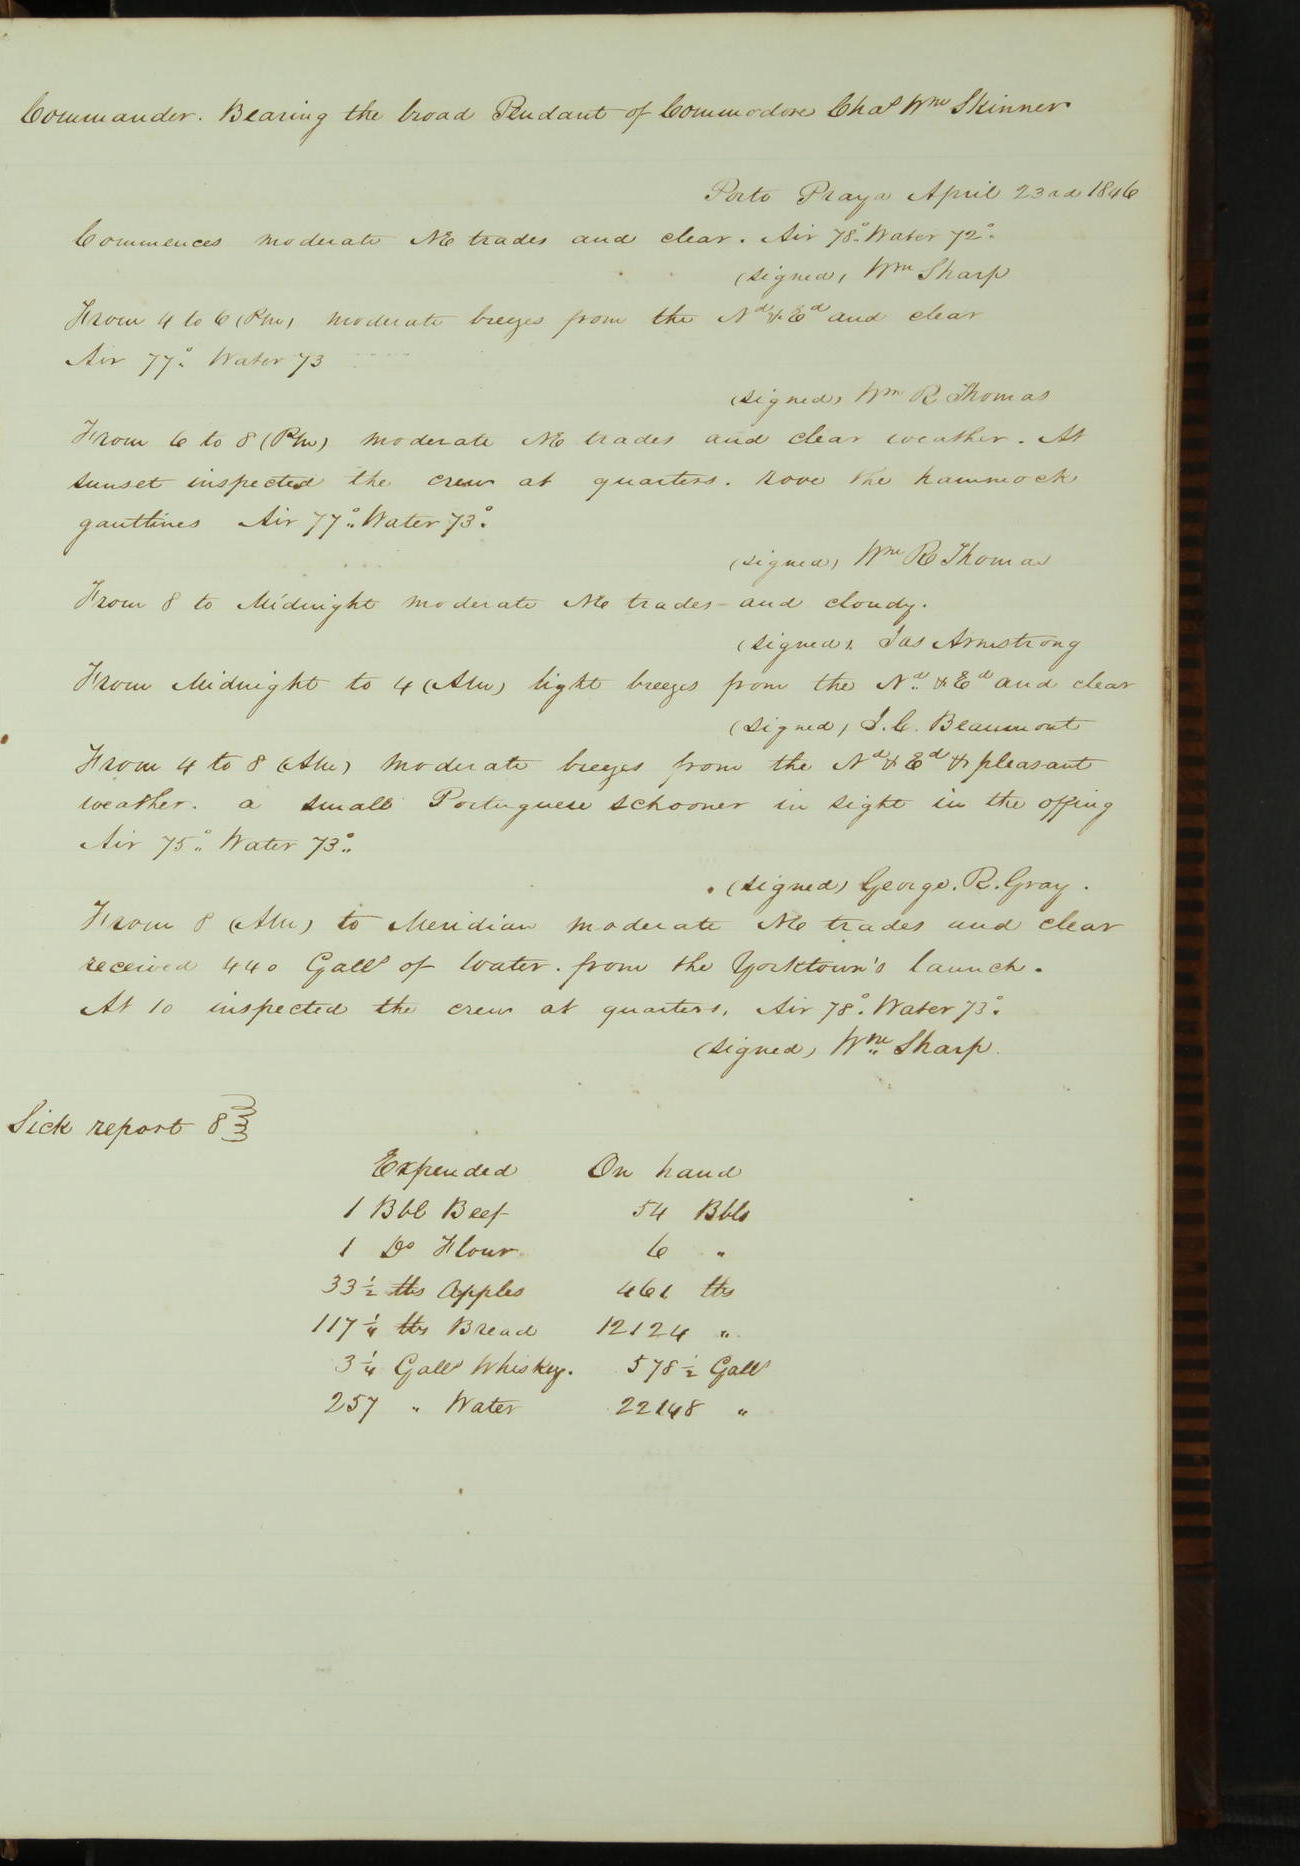 Commander. Bearing the broad Pendant of Commodore Chas Wm Skinner
Porto Praya April 23rd 1846
Commences moderate NE trades and clear. Air 78° Water 72°
(signed) Wm Sharp
From 4 to 6 (Pm) moderate breezes from the Nd & Ed and clear
Air 77° Water 73
(signed) Wm R Thomas
From 6 to 8 (Pm) moderate NE trades and clear weather. At
sunset inspected the crew at quarters. rove the hammock
gauttines Air 77° Water 73°
(signed) Wm R Thomas
From 8 to Midnight moderate NE trades and cloudy.
(signed) Jas Armstrong
From Midnight to 4 (Am) light breezes from the Nd & Ed and clear
(signed) J. C. Beaumont
From 4 to 8 (Am) moderate breezes from the Nd & Ed & pleasant
weather. a small Portuguese schooner in sight in the offing
Air 75° Water 73°
(signed) George. R. Gray.
From 8 (Am) to Meridian moderate NE trades and clear
received 440 Galls of Water. from the Yorktown's launch.
At 10 inspected the crew at quarters, Air 78° Water 73°
(signed) Wm Sharp.
Sick report 8
Expended On hand
1 Bbl Beef 54 Bbls
1 Do Flour 6 "
33 1/2 lbs Apples 461 lbs
117 1/4 lbs Bread 12124 "
3 1/4 Galls Whiskey. 578 1/2 Galls
257 " Water 22148 "